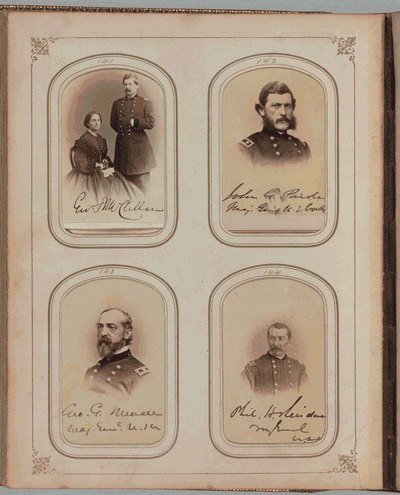 141
142
Geo B McClellan
John G. Parke
Maj. Genl U.S. Vols
143
144
Geo. G. Meade
Maj. Genl. U.S.A
Phil. H. Sheridan
M Genl
USA